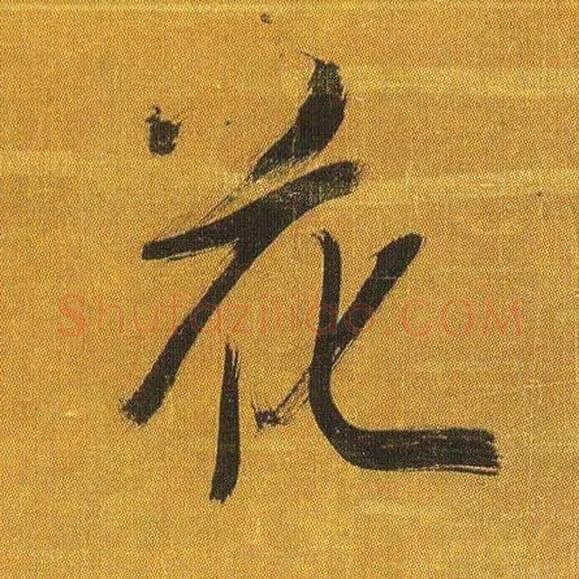 花
Shufaziliao.COM